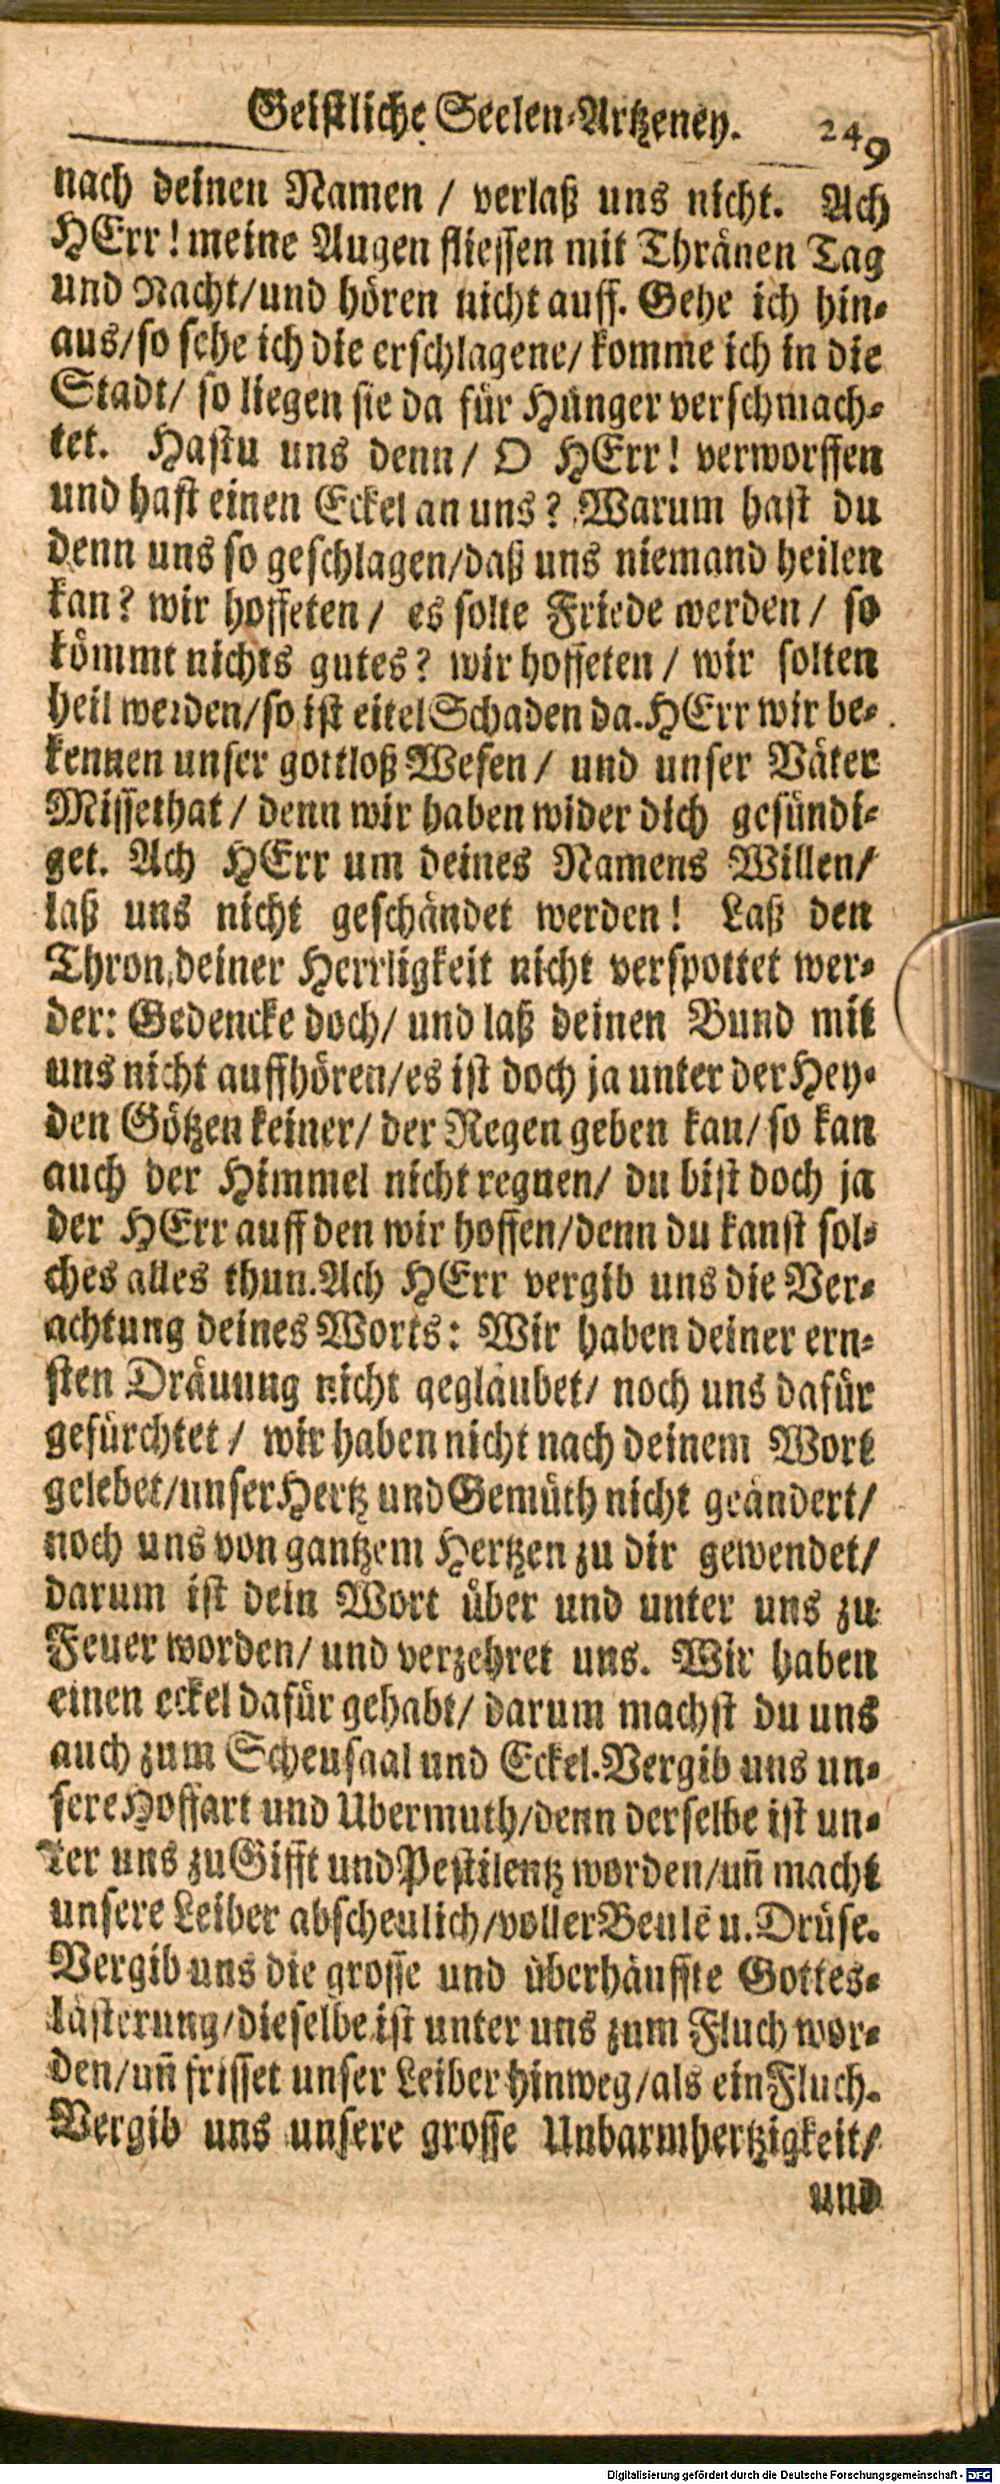 Geistliche Seelen-Artzeney. 249
nach deinen Namen / verlaß uns nicht. Ach
HErr! meine Augen fliessen mit Thränen Tag
und Nacht/und hören nicht auff. Gehe ich hin-
aus/so sehe ich die erschlagene/ komme ich in die
Stadt/ so liegen sie da für Hunger verschmach-
tet. Hastu uns denn/ O HErr! verworffen
und hast einen Eckel an uns? Warum hast du
denn uns so geschlagen/daß uns niemand heilen
kan? wir hoffeten / es solte Friede werden / so
kömmt nichts gutes? wir hoffeten / wir solten
heil werden/so ist eitel Schaden da.HErr wir be-
kennen unser gottloß Wesen / und unser Väter
Missethat / denn wir haben wider dich gesündi-
get. Ach HErr um deines Namens Willen/
laß uns nicht geschändet werden! Laß den
Thron deiner Herrligkeit nicht verspottet wer-
der: Gedencke doch/ und laß deinen Bund mit
uns nicht auffhören/es ist doch ja unter der Hey-
den Götzen keiner/ der Regen geben kan/ so kan
auch der Himmel nicht regnen/ du bist doch ja
der HErr auff den wir hoffen/denn du kanst sol-
ches alles thun.Ach HErr vergib uns die Ver-
achtung deines Worts: Wir haben deiner ern-
sten Dräuung nicht gegläubet/ noch uns dafür
gefürchtet / wir haben nicht nach deinem Wort
gelebet/unser Hertz und Gemüth nicht geändert/
noch uns von gantzem Hertzen zu dir gewendet/
darum ist dein Wort über und unter uns zu
Feuer worden/ und verzehret uns. Wir haben
einen eckel dafür gehabt/ darum machst du uns
auch zum Scheusaal und Eckel.Vergib uns un-
sere Hoffart und Ubermuth/denn derselbe ist un-
ter uns zu Gifft und Pestilentz worden/uñ macht
unsere Leiber abscheulich/voller Beulē u. Drüse.
Vergib uns die grosse und überhäuffte Gottes-
lästerung/dieselbe ist unter uns zum Fluch wor-
den/uñ frisset unser Leiber hinweg/als ein Fluch.
Vergib uns unsere grosse Unbarmhertzigkeit/
und
Digitalisierung gefördert durch die Deutsche Forschungsgemeinschaft - DFG